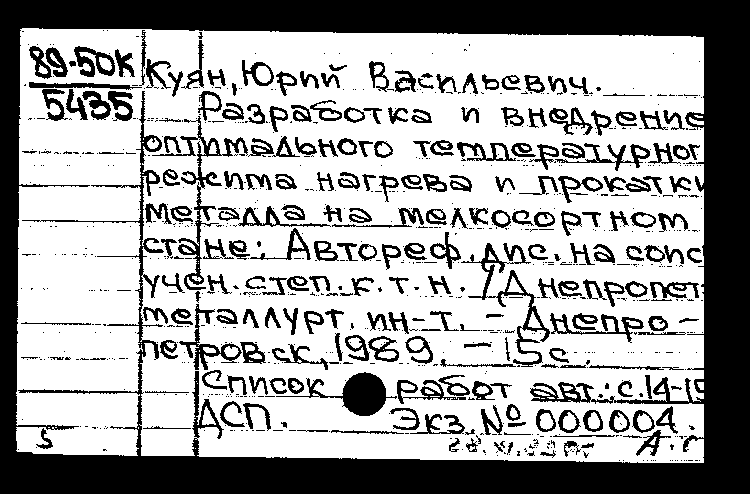 89-50К
5435
Куян, Юрий Васильевич.
Разработка и внедрение
оптимального температурног
режима нагрева и прокатки
металла на мелкосортном
стане: Автореф. дис. на соиск
учен. степ. к. т. н. / Днепропет
металлург. ин-т. - Днепро-
петровск, 1989. - 15 с.
Список работ авт.: с. 14-15
ДСП. Экз. № 000004.